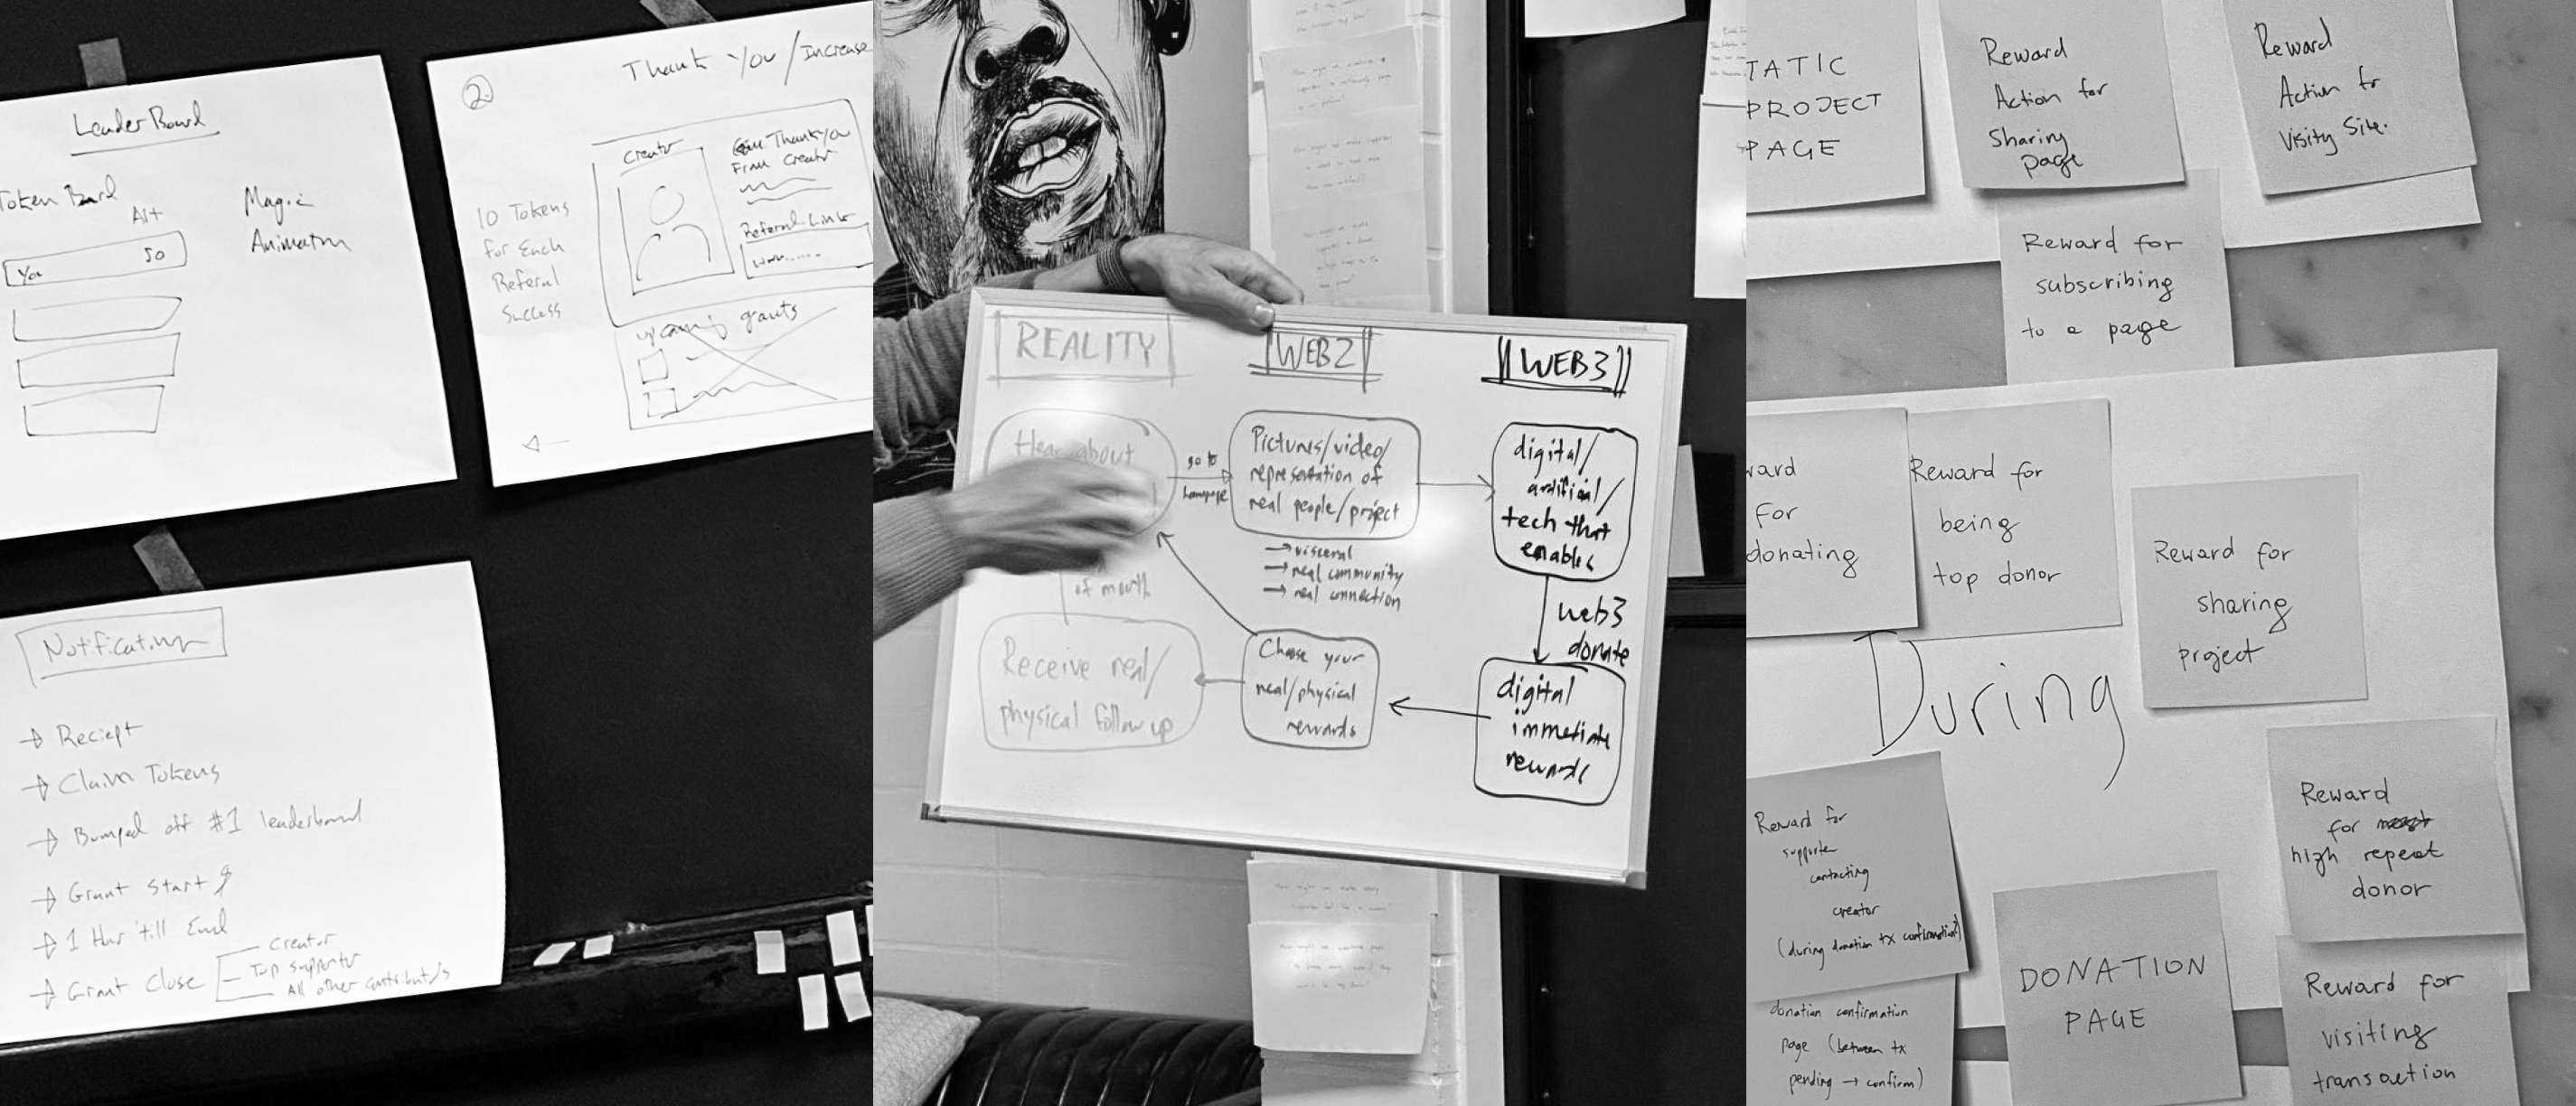 Leader Board
Token Board
Alt
You 50
Magic
Animation
2
Thank You / Increase
10 Tokens
for Each
Referral
Success
Creator
Thank You
From Creator
Referral Link
www......
upcoming grants
Notification
→ Reciept
→ Claim Tokens
→ Bumped off #1 leaderboard
→ Grant Start
→ 1 Hour 'till End
→ Grant Close
Creator
Top Supporter
All other contributors
REALITY
WEB2
WEB3
Hear about
go to
homepage
Pictures/video/
representation of
real people/project
→ visceral
→ real community
→ real connection
digital/
artificial/
tech that
enables
web3
donate
digital
immediate
rewards
Choose your
real/physical
rewards
Receive real/
physical follow up
of mouth
TATIC
PROJECT
PAGE
Reward
Action for
Sharing
page
Reward
Action for
Visity Site.
Reward for
subscribing
to a page
ward
for
donating
Reward for
being
top donor
Reward for
sharing
project
During
Reward for
supporter
contacting
creator
(during donation tx confirmation?)
donation confirmation
page (between tx
pending → confirm)
DONATION
PAGE
Reward
for
high repeat
donor
Reward for
visiting
transaction